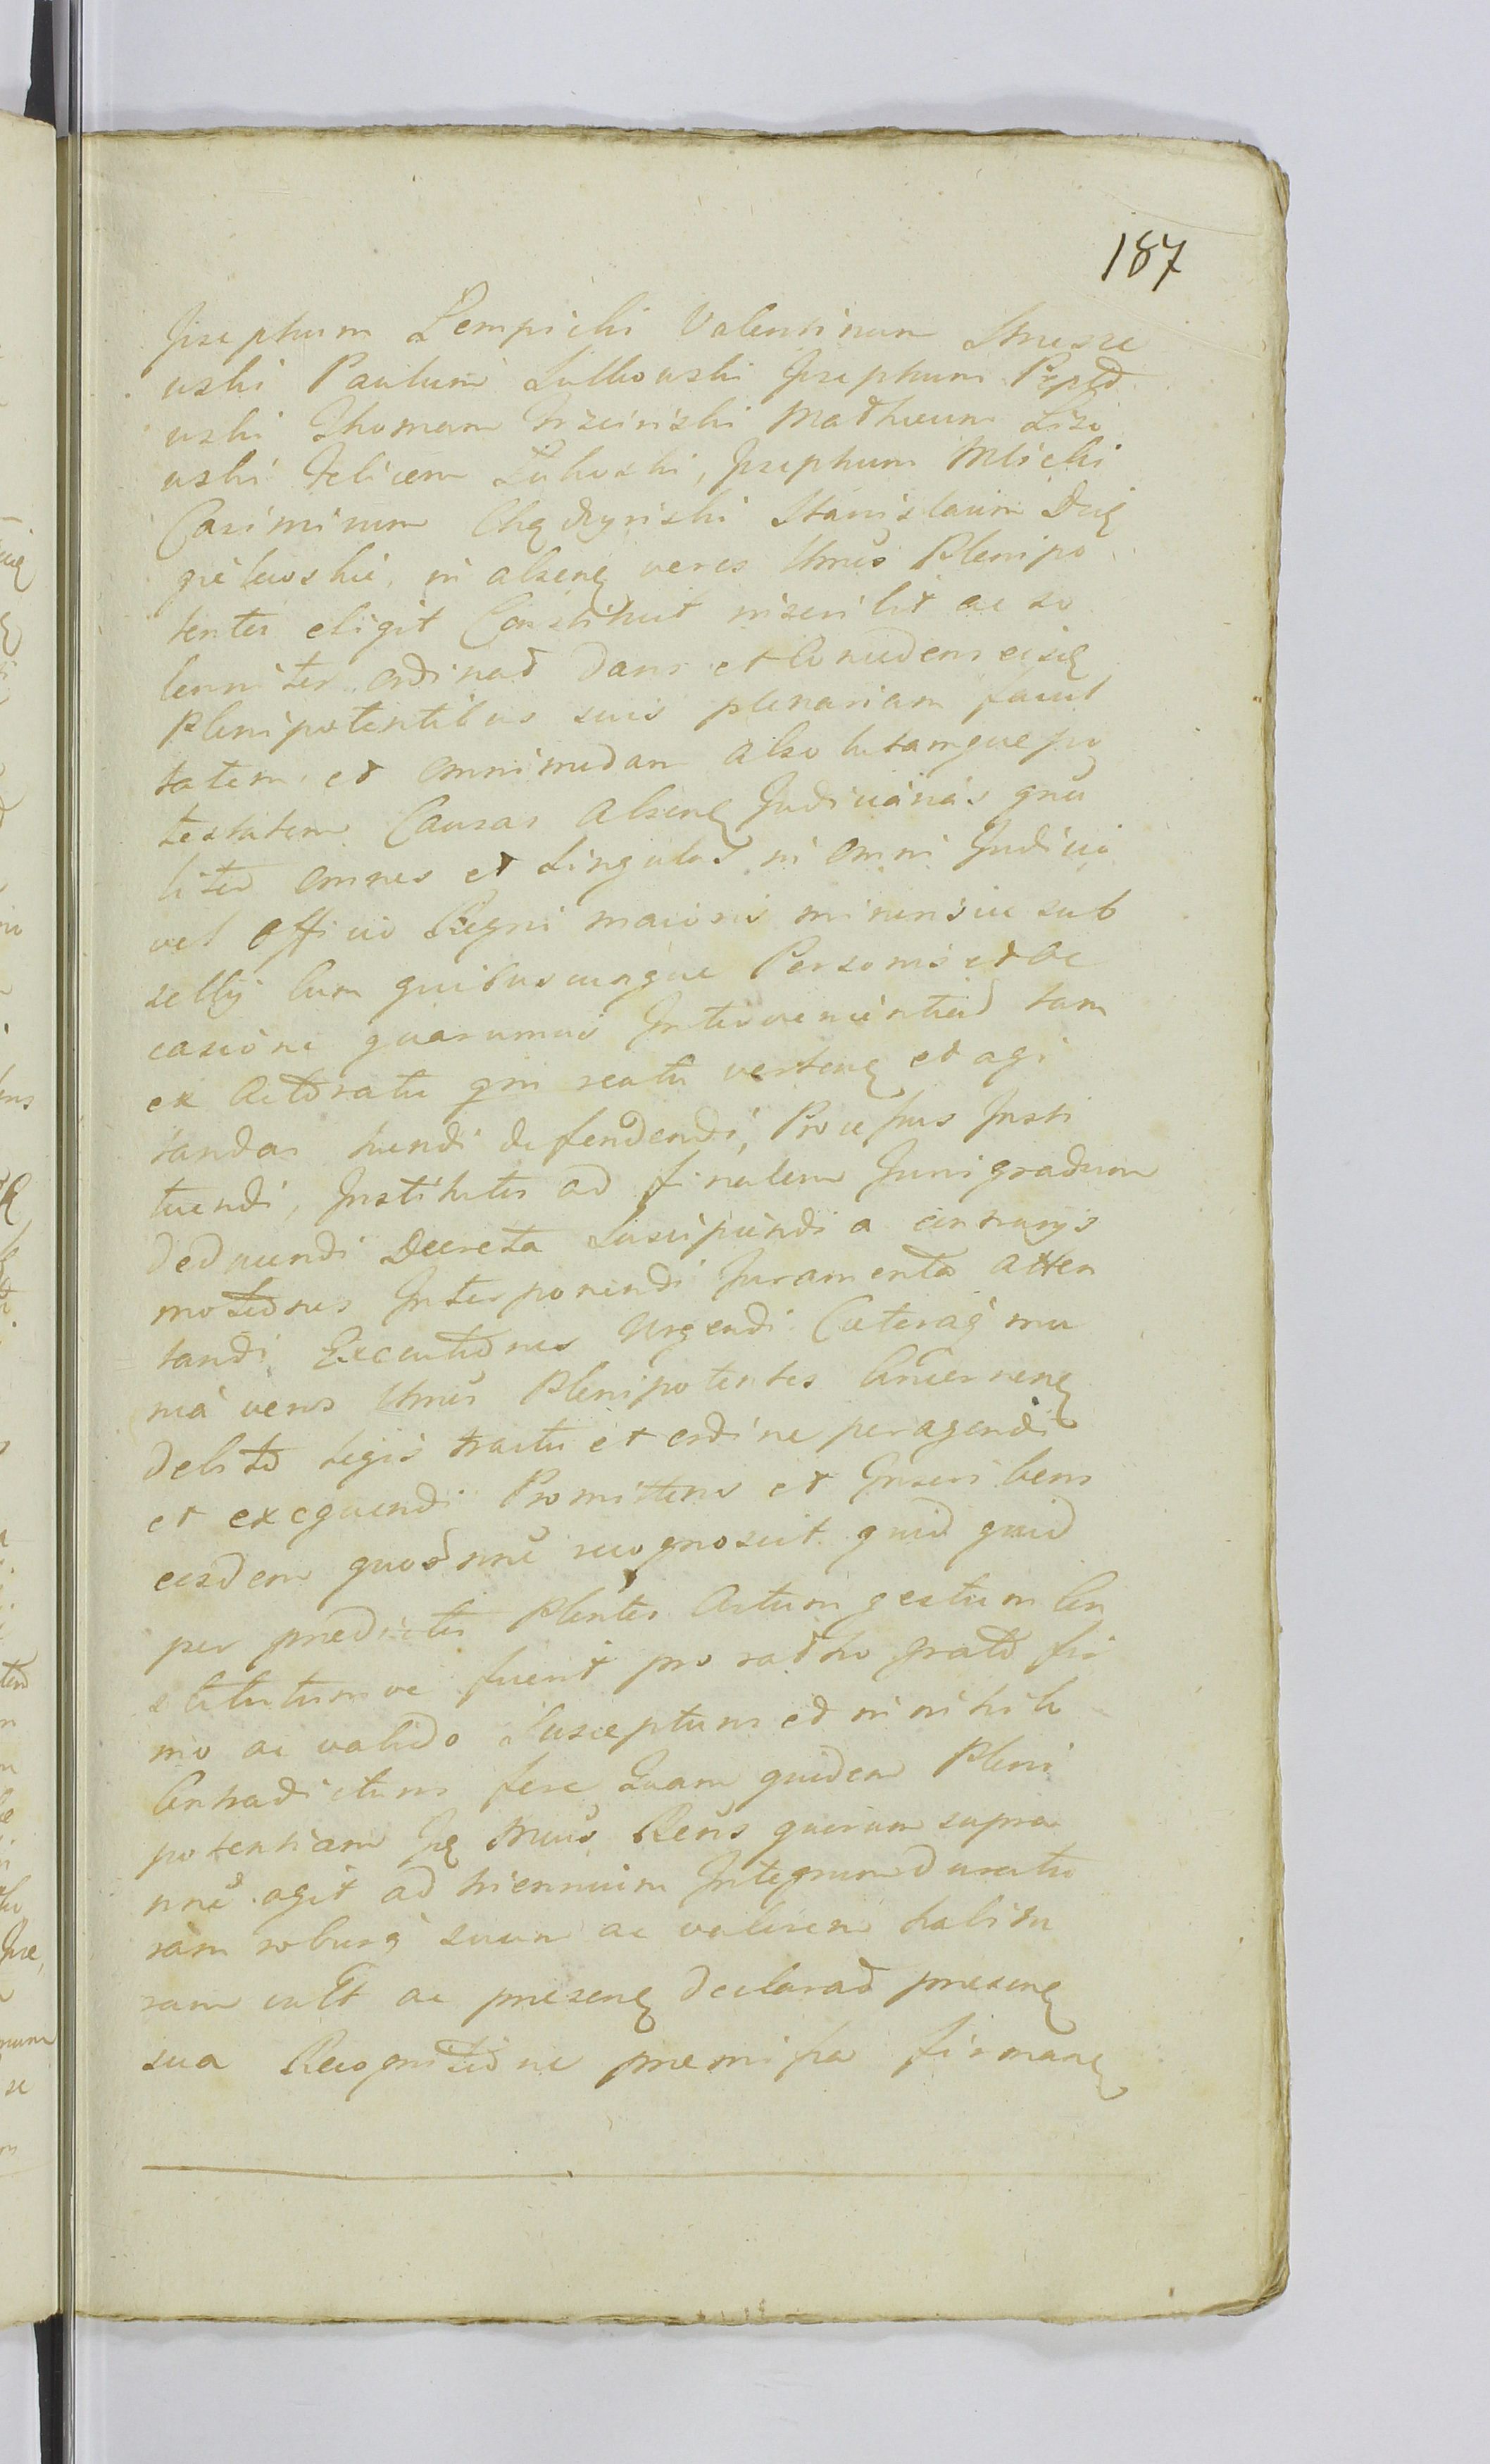 187
Josephum Lempicki Valentinum
wski Paulum Lutkowski Josephum
wski Thomam Trzcinski Mathæum
wski Felicem Zukoski, Josephum Mlicki
Casimirum Chądzynski Stanislaum
gielewski, in absenę veros Plenipo
tentes eligit Constituit inscribit ac so
lenniter ordinat dans et Concedens eisdę
Plenipotentibus suis plenariam facul
tatem et omnimodam absolutamque po
testatem Causas absenę Judiciarias gnra
liter omnes et singulas in omni Judicio
vel officio Regni maioris minorisve sub
sellij cum quibuscunque Personis et oc
casione quarumvis Intervenientium tam
ex actoratu qm reatu vertenę et agi
tandas tuendi defendendi, Processus Insti
tuendi, Institutos ad finalem Juris gradum
deducendi Decreta Suscipiendi a contrarys
motiones Interponendi Juramenta atten
tandi Executiones Urgendi Cæteraq mu
nia veros Plenipotentes Concernenę
debito legis tractu et ordine peragendi
et exequendi Promittens et Inscribens
eisdem quod recognoscit quid quid
per prædictos Plentes Actum gestum Con
stitutumve fuerit pro ratho grato fir
mo ac valido Suscepturus et in nihilo
Contradicturus fore Quam quidem Pleni
potentiam Recns quorum supra
agit ad triennium Integrum duratu
ram roburq suum ac valorem habitu
ram vult ac præsenę declarat præsenę
sua Recognitione præmissa firmanę